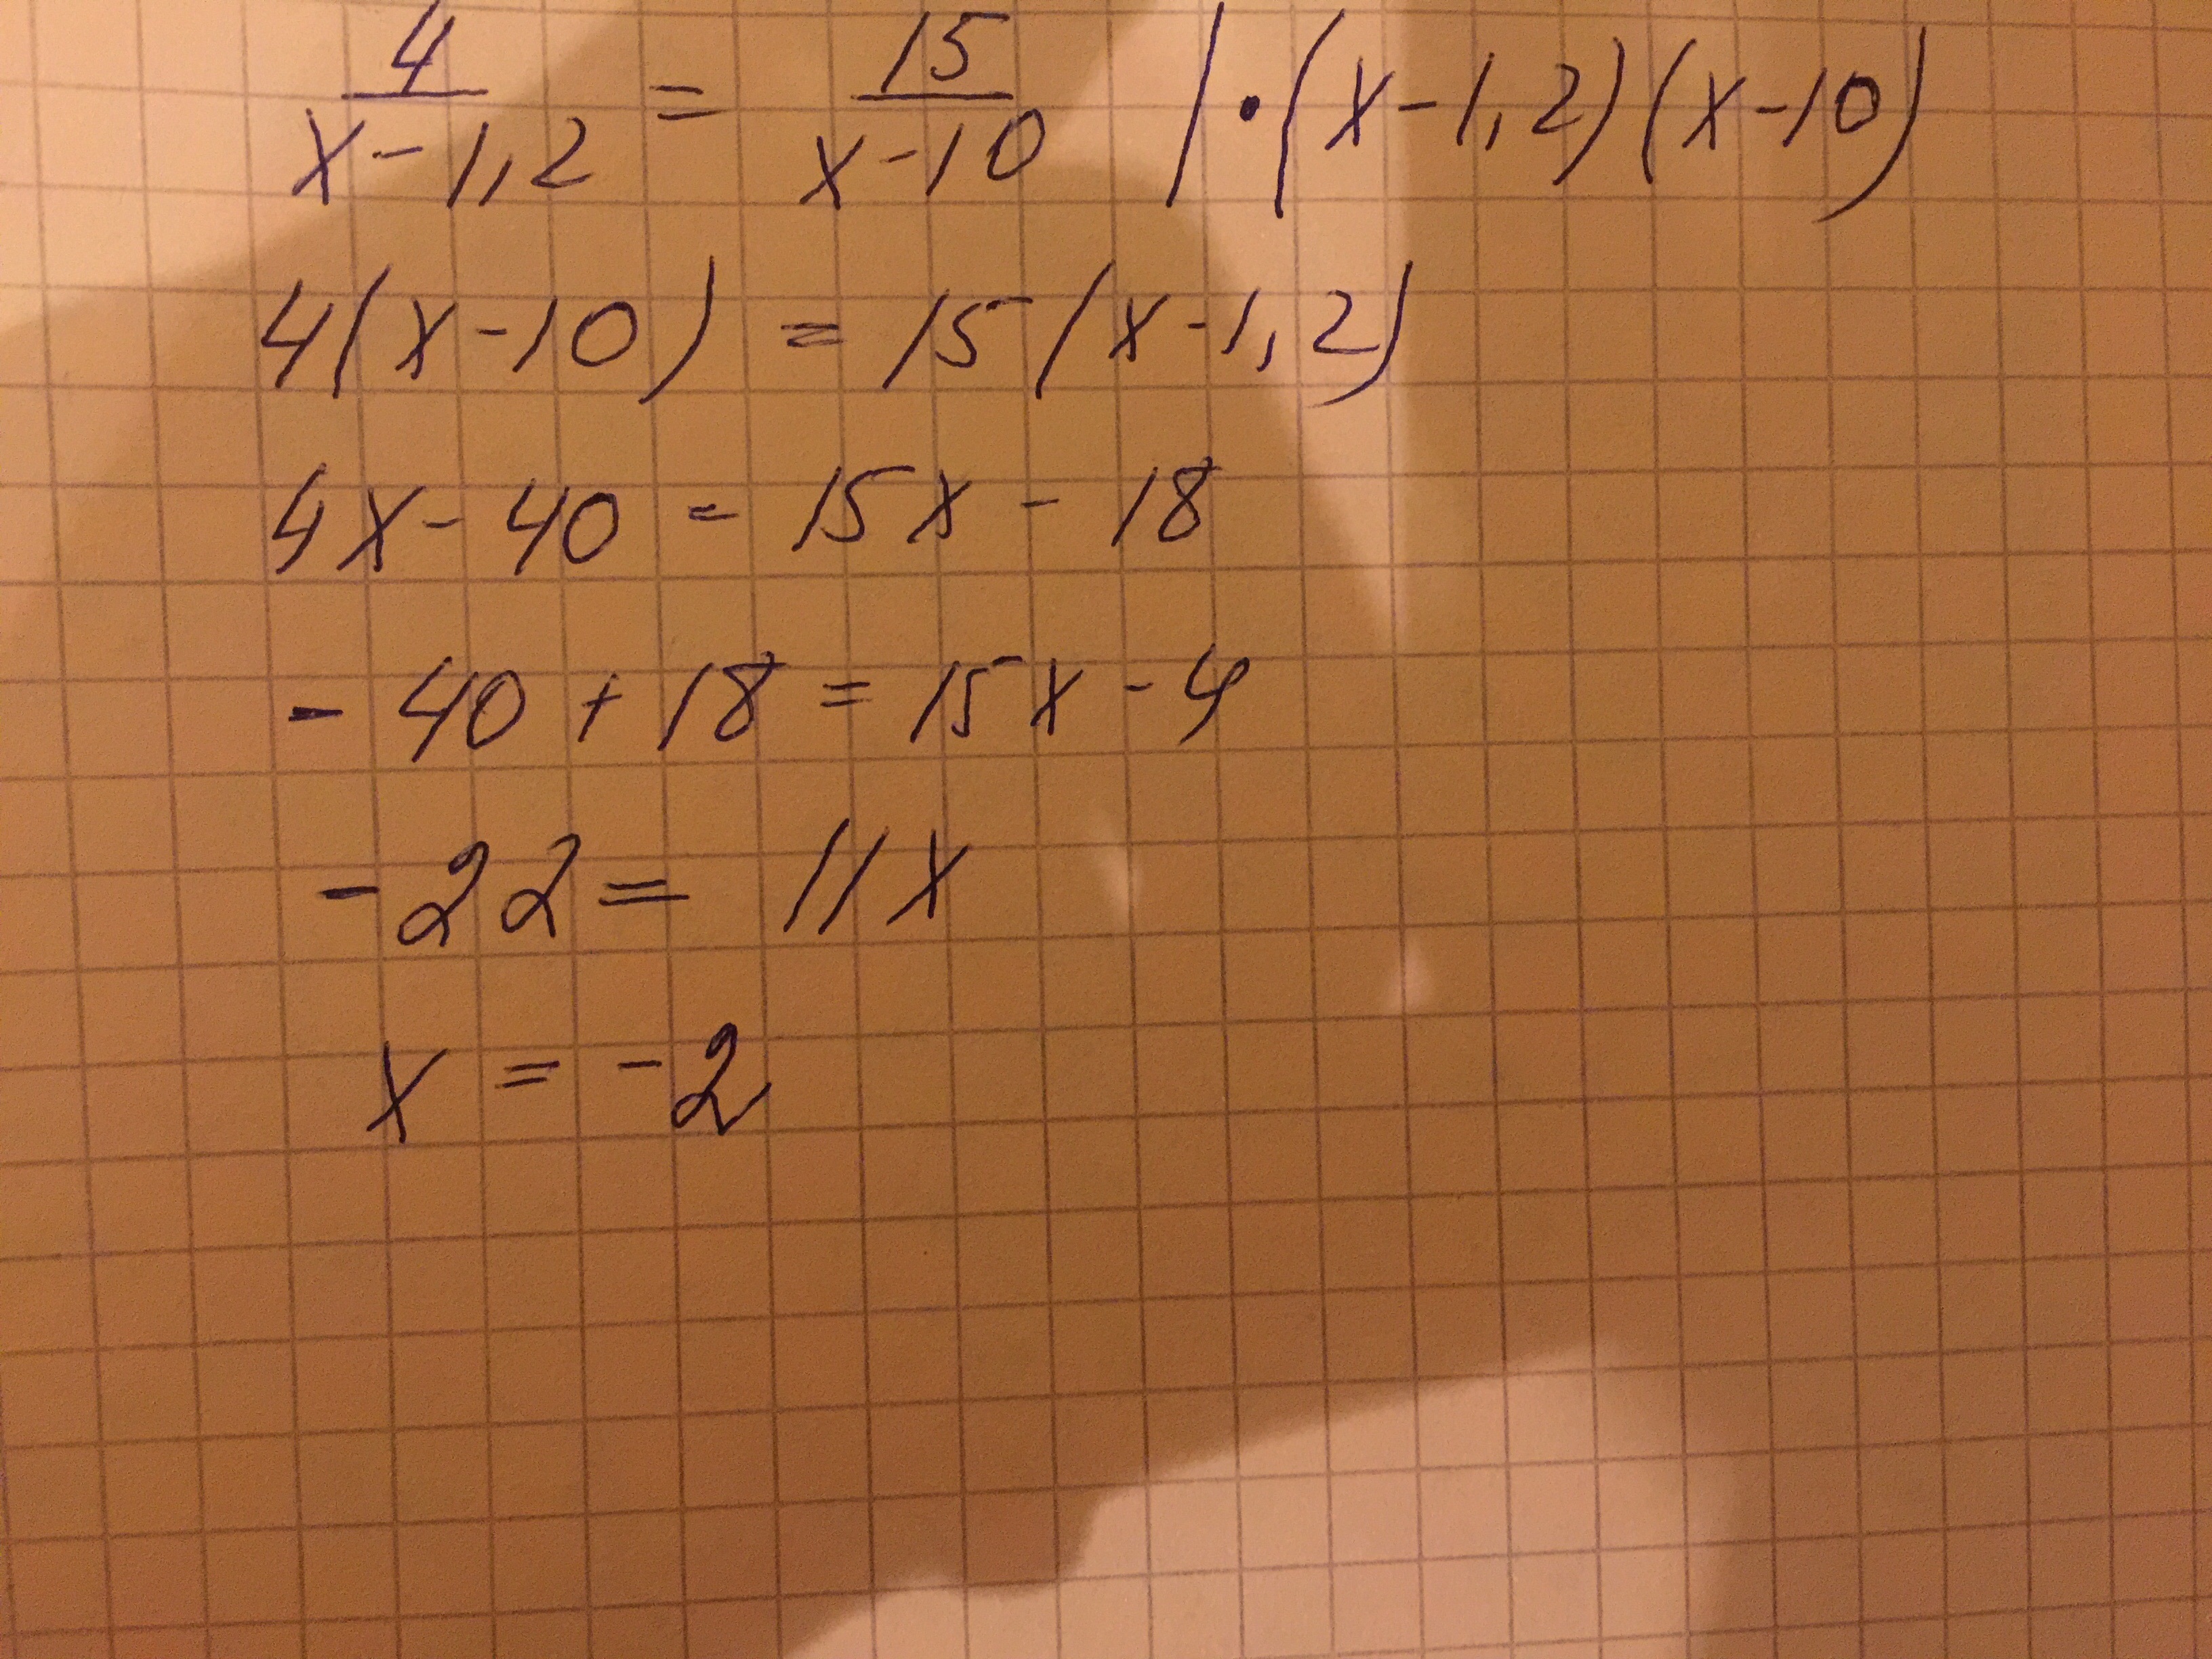 4/(x-1,2) = 15/(x-10) | • (x-1,2)(x-10)
4(x-10) = 15(x-1,2)
4x - 40 = 15x - 18
- 40 + 18 = 15x - 4
-22 = 11x
x = -2